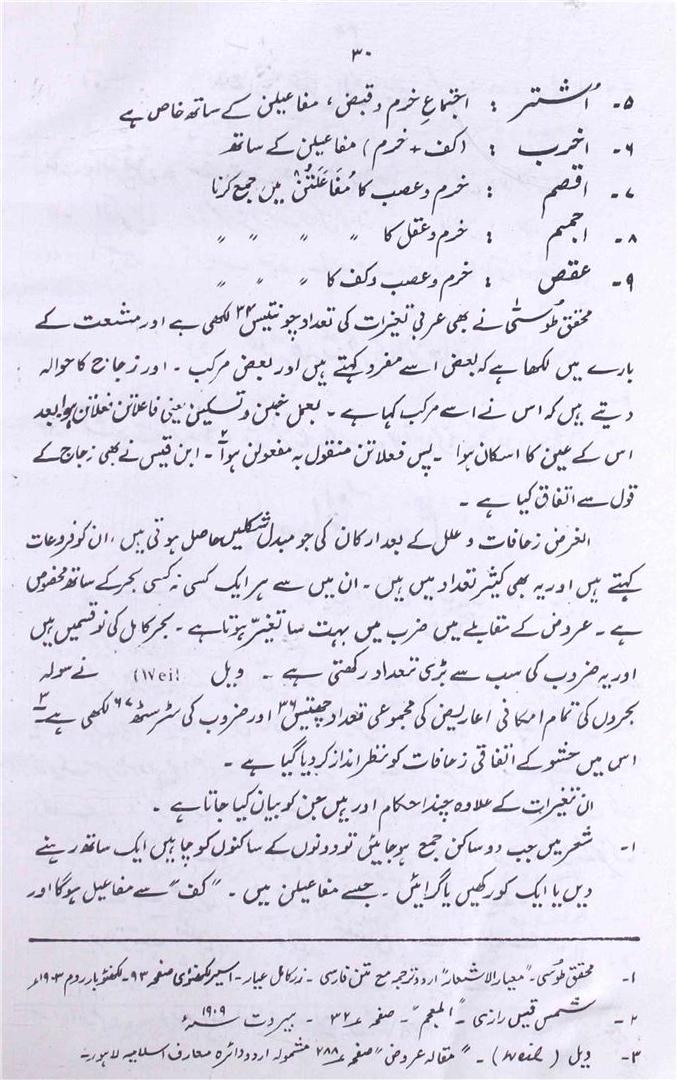 ۳۰
۵۔ اُشتر : اجتماعِ خرم و قبض ، مفاعیلن کے ساتھ خاص ہے
۶۔ اخرب : (کف + خرم) مفاعیلن کے ساتھ
۷۔ اقصم : خرم و عصب کا مُفَاعَلَتُنْ میں جمع کرنا
۸۔ اجمم : خرم و عقل کا 〃 〃 〃 〃
۹۔ عقص : خرم و عصب و کف کا 〃 〃 〃 〃
محقق طوسی۱ نے بھی عربی تغیرات کی تعداد چونتیس ۳۴ لکھی ہے اور مشعت کے
بارے میں لکھا ہے کہ بعض اسے مفرد کہتے ہیں اور بعض مرکب ۔ اور زجاج کا حوالہ
دیتے ہیں کہ اس نے اسے مرکب کہا ہے ۔ بعمل خبن و تسکین یعنی فاعلاتن فعلاتن ہوا۔ بعد
اس کے عین کا اسکان ہوا ۔ پس فعلاتن منقول بہ مفعولن ہوا۲۔ ابن قیس نے بھی زجاج کے
قول سے اتفاق کیا ہے ۔
الغرض زحافات و علل کے بعد ارکان کی جو مبدل شکلیں حاصل ہوتی ہیں ، ان کو فروعات
کہتے ہیں اور یہ بھی کثیر تعداد میں ہیں ۔ ان میں سے ہر ایک کسی نہ کسی بحر کے ساتھ مخصوص
ہے ۔ عروض کے مقابلے میں ضرب میں بہت سا تغیّر ہوتا ہے ۔ بحر کامل کی نو قسمیں ہیں
اور یہ ضروب کی سب سے بڑی تعداد رکھتی ہے ۔ ویل (Weil) نے سولہ
بحروں کی تمام امکانی اعاریض کی مجموعی تعداد چھتیس ۳۶ اور ضروب کی سڑسٹھ ۶۷ لکھی ہے۳۔
اس میں حشو کے اتفاقی زحافات کو نظر انداز کر دیا گیا ہے ۔
ان تغیرات کے علاوہ چند احکام اور ہیں جن کو بیان کیا جاتا ہے ۔
۱۔ شعر میں جب دو ساکن جمع ہو جائیں تو دونوں کے ساکنوں کو چاہیں ایک ساتھ رہنے
دیں یا ایک کو رکھیں یا گرائیں ۔ جیسے مفاعیلن میں ۔ ”کف“ سے مفاعیل ہوگا اور
۱۔ محقق طوسی ۔ ”معیار الاشعار“ اردو ترجمہ مع متن فارسی ۔ زر کامل عیار ۔ اسیر لکھنوی صفحہ ۹۳ ۔ لکھنؤ بار دوم ۱۹۰۳ء
۲۔ شمس قیس رازی ۔ ”المعجم“ ۔ صفحہ ۳۲ ۔ بیروت ۱۹۰۹ء
۳۔ ویل (Weil) ۔ ”مقالہ عروض“ صفحہ ۲۸۸ مشمولہ اردو دائرہ معارف اسلامیہ لاہور ۔